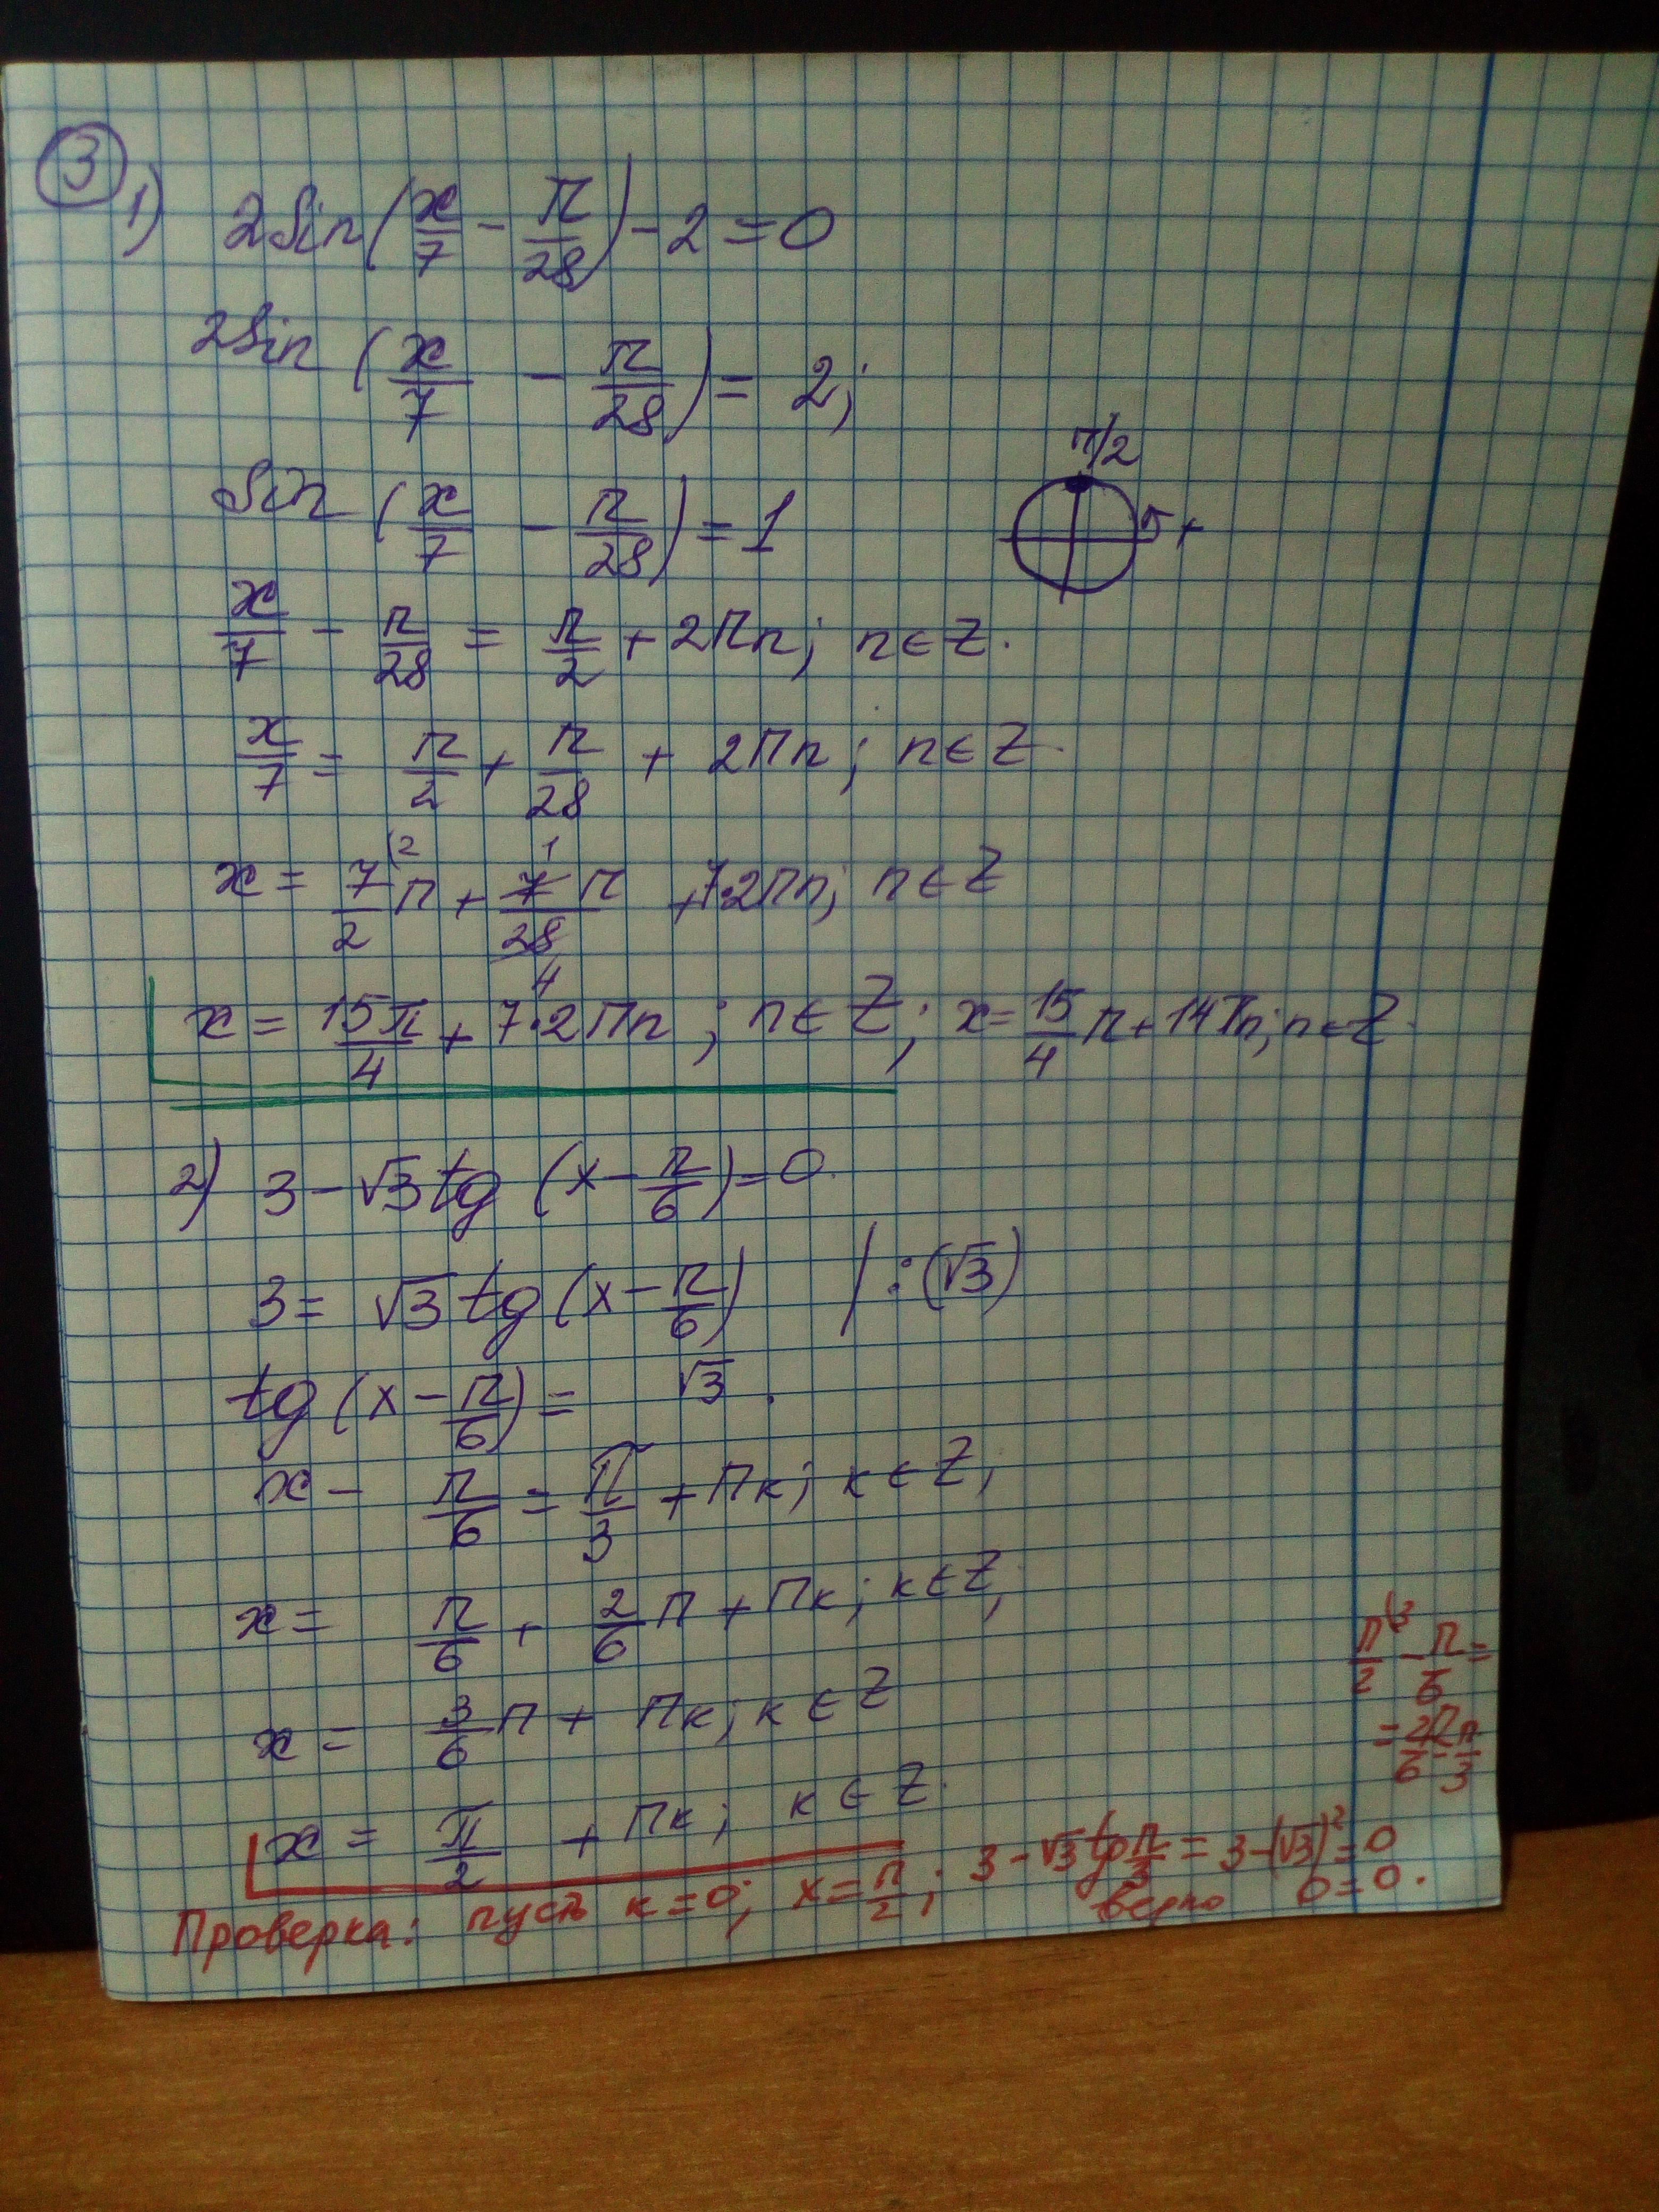 3
1) 2Sin(x/7 - π/28) - 2 = 0
2Sin (x/7 - π/28) = 2;
Sin (x/7 - π/28) = 1
π/2
x/7 - π/28 = π/2 + 2πn; n ∈ Z.
x/7 = π/2 + π/28 + 2πn; n ∈ Z.
x = 7(2/2 π + 7 1 π/28 4 + 7·2πn; n ∈ Z
x = 15π/4 + 7·2πn; n ∈ Z; x = 15/4 π + 14πn; n ∈ Z.
2) 3 - √3 tg (x - π/6) = 0.
3 = √3 tg (x - π/6) | : (√3)
tg (x - π/6) = √3.
x - π/6 = π/3 + πк; к ∈ Z;
x = π/6 + 2/6 π + πк; к ∈ Z;
x = 3/6 π + πк; к ∈ Z
x = π/2 + πк; к ∈ Z.
π(3/2 - π/6 =
= 2π/6 = π/3
Проверка: пусть к = 0; x = π/2; 3 - √3 tg π/3 = 3 - (√3)² = 0
верно 0 = 0.